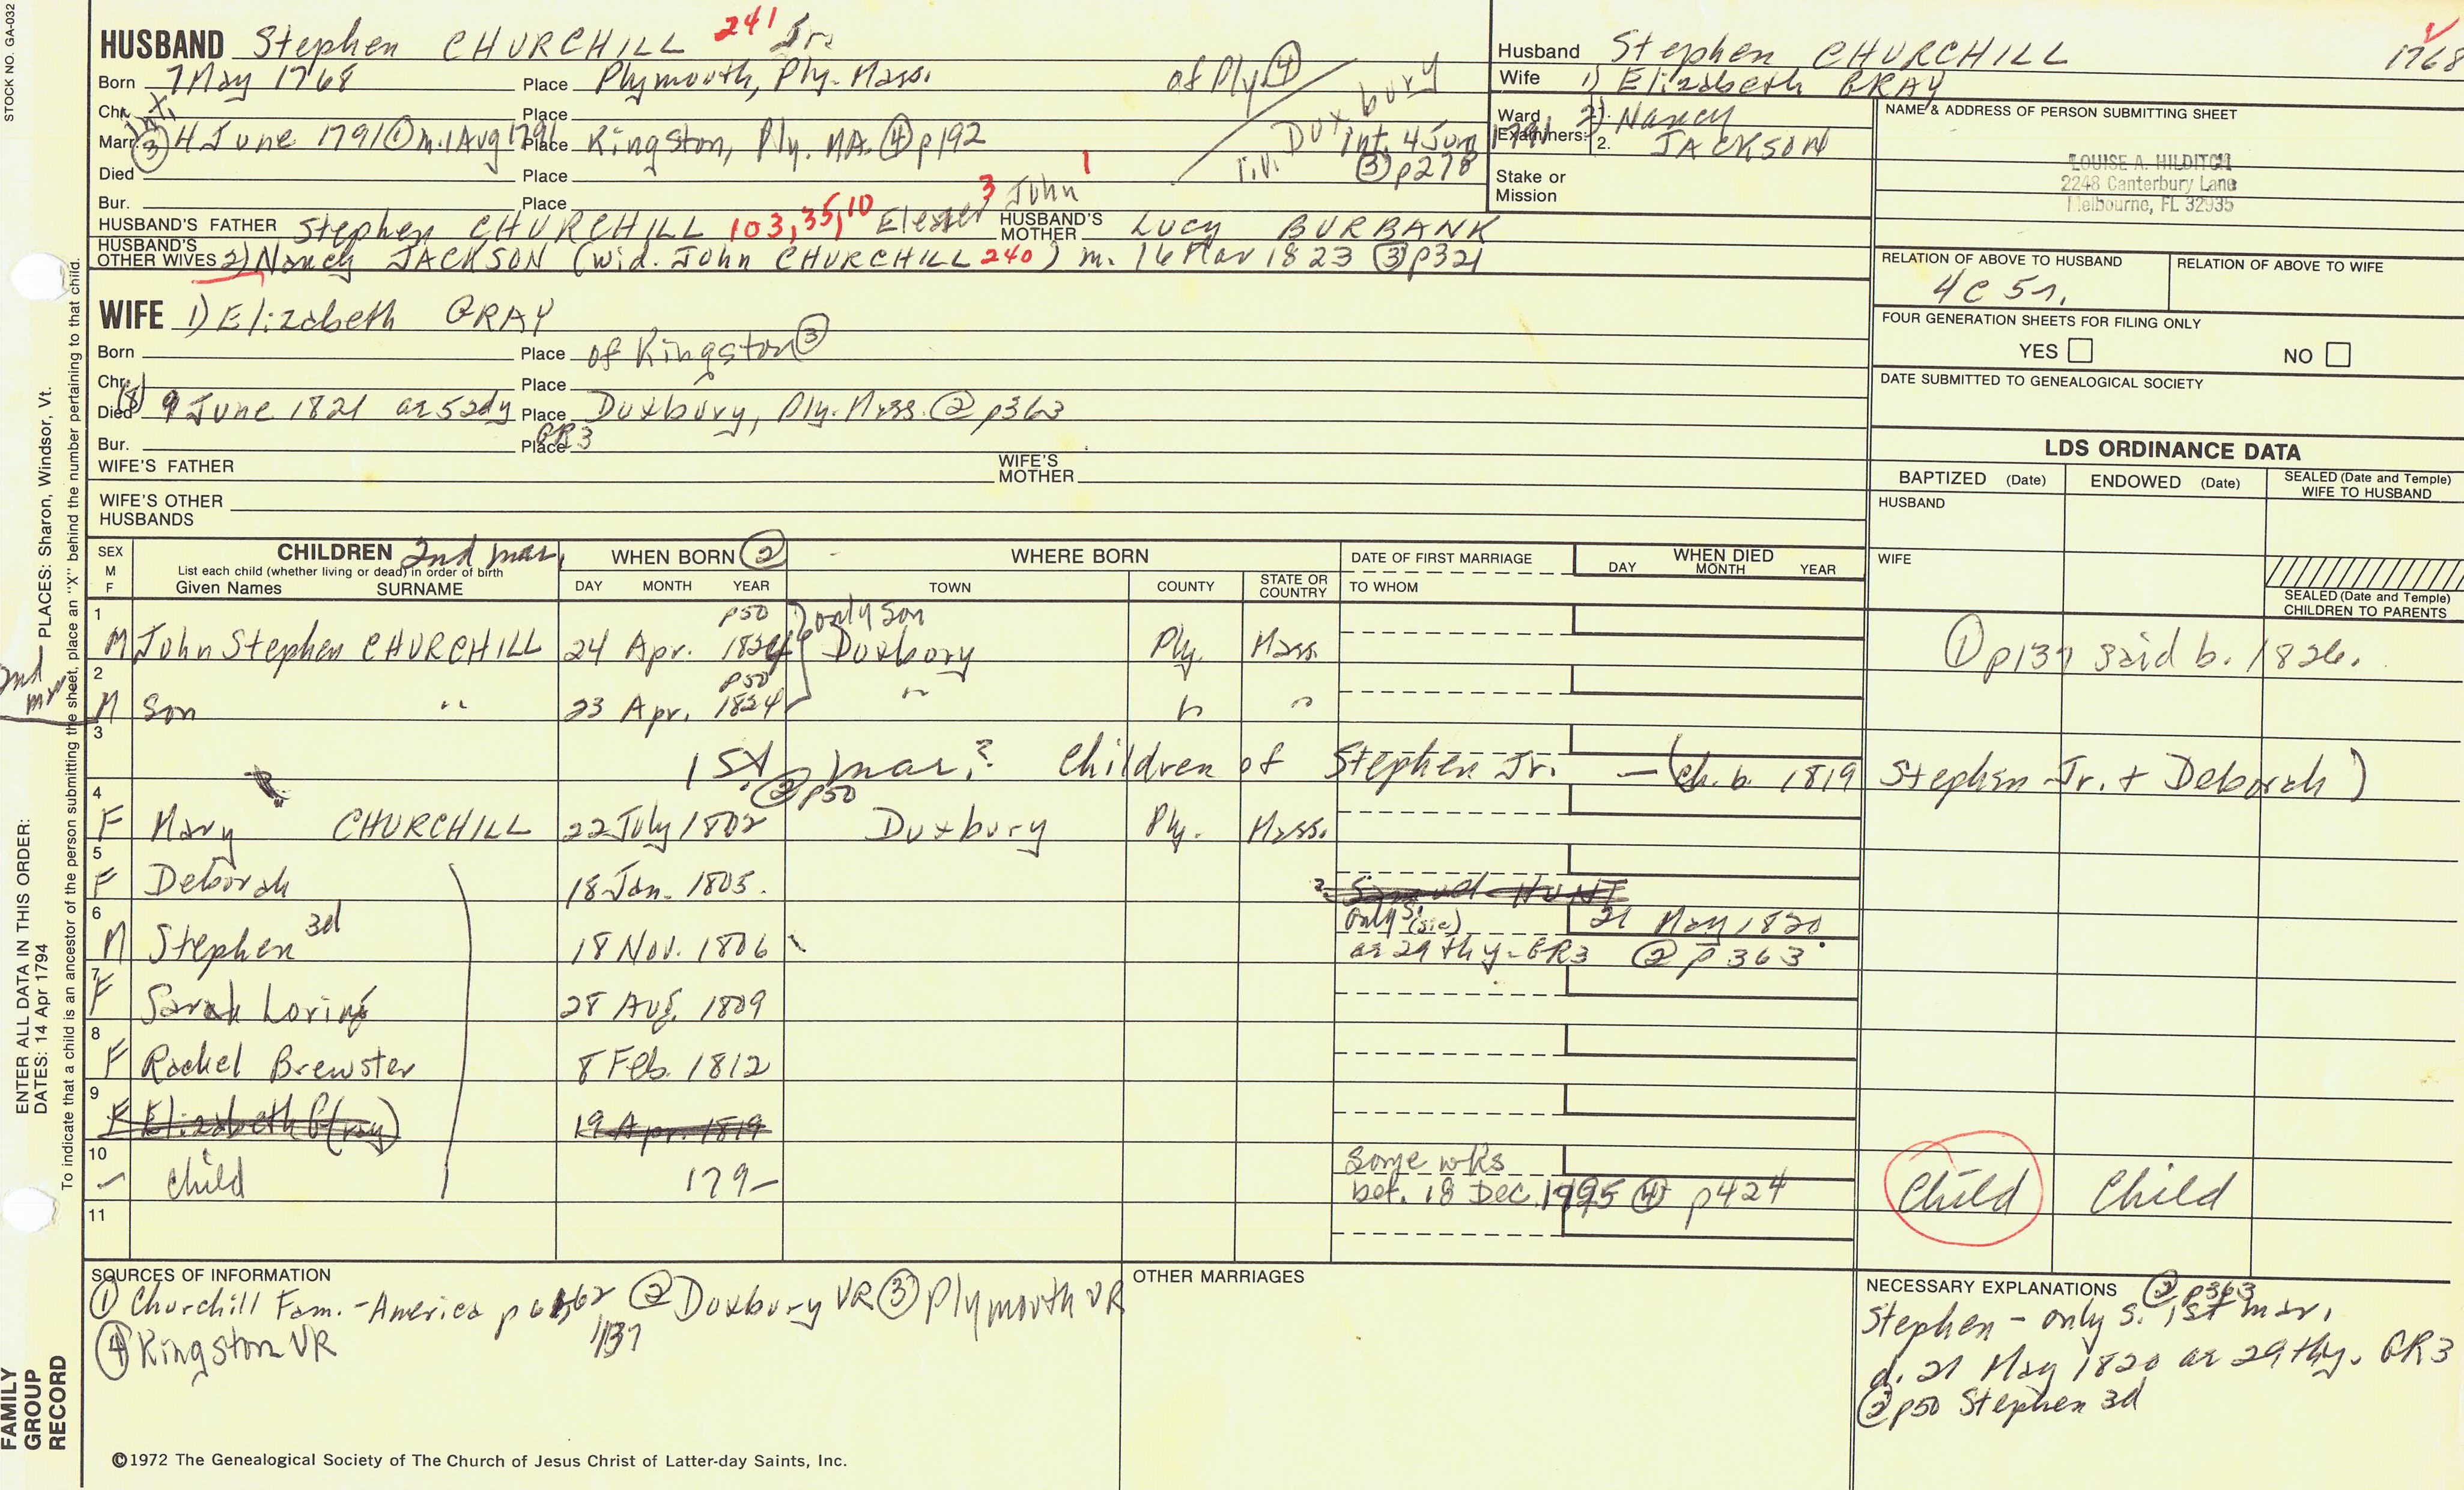 STOCK NO. GA-032
HUSBAND Stephen CHURCHILL 241 Jr.
Born 7 May 1768 Place Plymouth, Ply. Mass. of Ply ④
Chr. Place
Int.
Marr. ③ 4 June 1791 ① m. 1 Aug 1791 Place Kingston, Ply. MA. ④ p192
Duxbury
Int. 4 Jun 1791
③ p278
Died Place
Bur. Place
HUSBAND'S FATHER Stephen CHURCHILL 103,35,10 Eleazer 3 John 1 HUSBAND'S MOTHER Lucy BURBANK
HUSBAND'S OTHER WIVES 2) Nancy JACKSON (wid. John CHURCHILL 240) m. 16 Mar 1823 ③ p321
Husband Stephen CHURCHILL 1768
Wife 1) Elizabeth GRAY
Ward Examiners: 2) Nancy
2. JACKSON
Stake or Mission
NAME & ADDRESS OF PERSON SUBMITTING SHEET
LOUISE A. HILDITCH
2248 Canterbury Lane
Melbourne, FL 32935
RELATION OF ABOVE TO HUSBAND RELATION OF ABOVE TO WIFE
4c 5r.
FOUR GENERATION SHEETS FOR FILING ONLY
YES NO
DATE SUBMITTED TO GENEALOGICAL SOCIETY
WIFE 1) Elizabeth GRAY
Born Place of Kingston ③
Chr. Place
Died (8) 9 June 1821 ae 52dy Place Duxbury, Ply. Mass. ② p363
Bur. Place GR3
WIFE'S FATHER WIFE'S MOTHER
WIFE'S OTHER HUSBANDS
LDS ORDINANCE DATA
BAPTIZED (Date) ENDOWED (Date) SEALED (Date and Temple) WIFE TO HUSBAND
HUSBAND
WIFE
SEALED (Date and Temple) CHILDREN TO PARENTS
SEX M F CHILDREN 2nd mar. WHEN BORN ② WHERE BORN DATE OF FIRST MARRIAGE WHEN DIED
List each child (whether living or dead) in order of birth
Given Names SURNAME DAY MONTH YEAR TOWN COUNTY STATE OR COUNTRY TO WHOM DAY MONTH YEAR
2nd mr
1 M John Stephen CHURCHILL 24 Apr. 1824 p50 only son Duxbury Ply. Mass. ① p137 said b. 1826.
2 M Son " 23 Apr. 1824 p50 " " "
3 1st mar.? Children of Stephen Jr. — (ch. b. 1819 Stephen Jr. + Deborah)
4 F Mary CHURCHILL 22 July 1802 ② p50 Duxbury Ply. Mass.
5 F Deborah 18 Jan. 1805. Samuel HUNT
6 M Stephen 3d 18 Nov. 1806 only s. (sic) 21 May 1820
ae 29 thy - GR3 ② p363
7 F Sarah Loring 28 Aug. 1809
8 F Rachel Brewster 8 Feb. 1812
9 F Elizabeth G(ray) 19 Apr. 1819
10 — Child 179- some wks
bef. 18 Dec. 1795 ④ p424 Child Child
11
SOURCES OF INFORMATION
① Churchill Fam. - America p 62 ② Duxbury VR ③ Plymouth VR
137
④ Kingston VR
OTHER MARRIAGES
NECESSARY EXPLANATIONS ② p363
Stephen - only s. 1st mar.
d. 21 May 1820 ae 29 thy. GR3
② p50 Stephen 3d
©1972 The Genealogical Society of The Church of Jesus Christ of Latter-day Saints, Inc.
ENTER ALL DATA IN THIS ORDER:
DATES: 14 Apr 1794 PLACES: Sharon, Windsor, Vt.
To indicate that a child is an ancestor of the person submitting the sheet, place an "X" behind the number pertaining to that child.
FAMILY
GROUP
RECORD